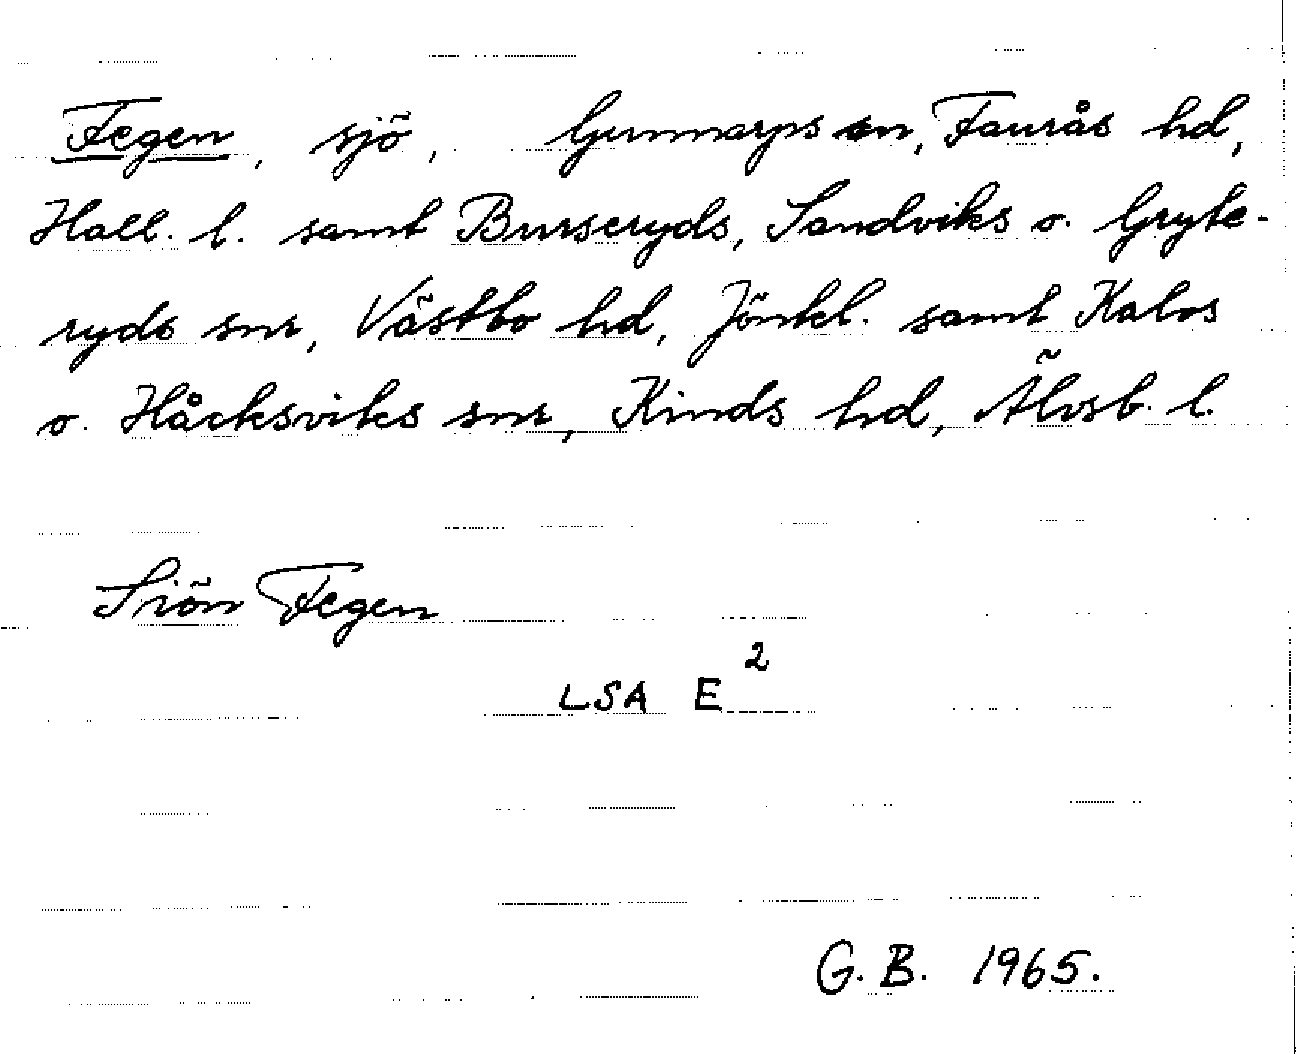 Fegen, sjö, Gunnarps sn, Faurås hd,
Hall. l. samt Burseryds, Sandviks o. Gryte-
ryds snr, Västbo hd, Jönkl. samt Kalvs
o. Håcksviks snr, Kinds hd, Älvsb. l.
Siön Fegen
LSA E²
G. B. 1965.